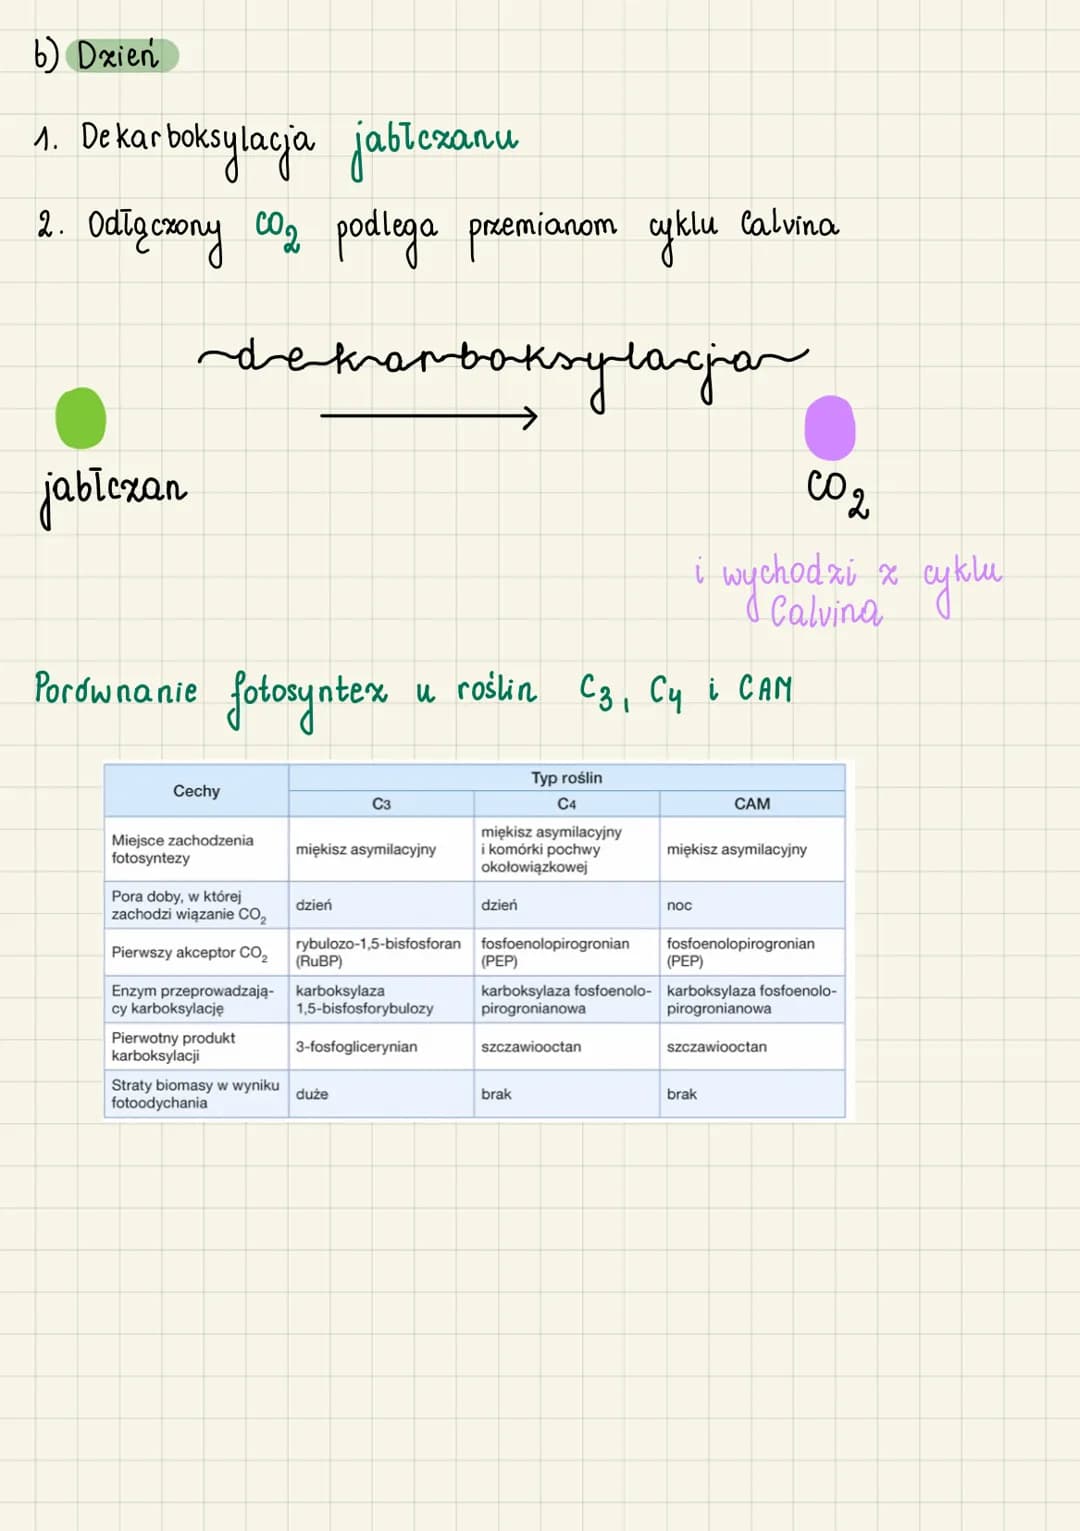 b) Dzień
1. Dekarboksylacja jabłczanu
2. Odłączony CO₂ podlega przemianom cyklu Calvina
dekarboksylacja
jabłczan
CO₂
i wychodzi z cyklu
Calvina
Porównanie fotosyntez u roślin C3, C4 i CAM
Cechy
Typ roślin
C3 C4 CAM
Miejsce zachodzenia
fotosyntezy
miękisz asymilacyjny
miękisz asymilacyjny
i komórki pochwy
okołowiązkowej
miękisz asymilacyjny
Pora doby, w której
zachodzi wiązanie CO₂
dzień
dzień
noc
Pierwszy akceptor CO₂
rybulozo-1,5-bisfosforan
(RuBP)
fosfoenolopirogronian
(PEP)
fosfoenolopirogronian
(PEP)
Enzym przeprowadzają-
cy karboksylację
karboksylaza
1,5-bisfosforybulozy
karboksylaza fosfoenolo-
pirogronianowa
karboksylaza fosfoenolo-
pirogronianowa
Pierwotny produkt
karboksylacji
3-fosfoglicerynian
szczawiooctan
szczawiooctan
Straty biomasy w wyniku
fotoodychania
duże
brak
brak